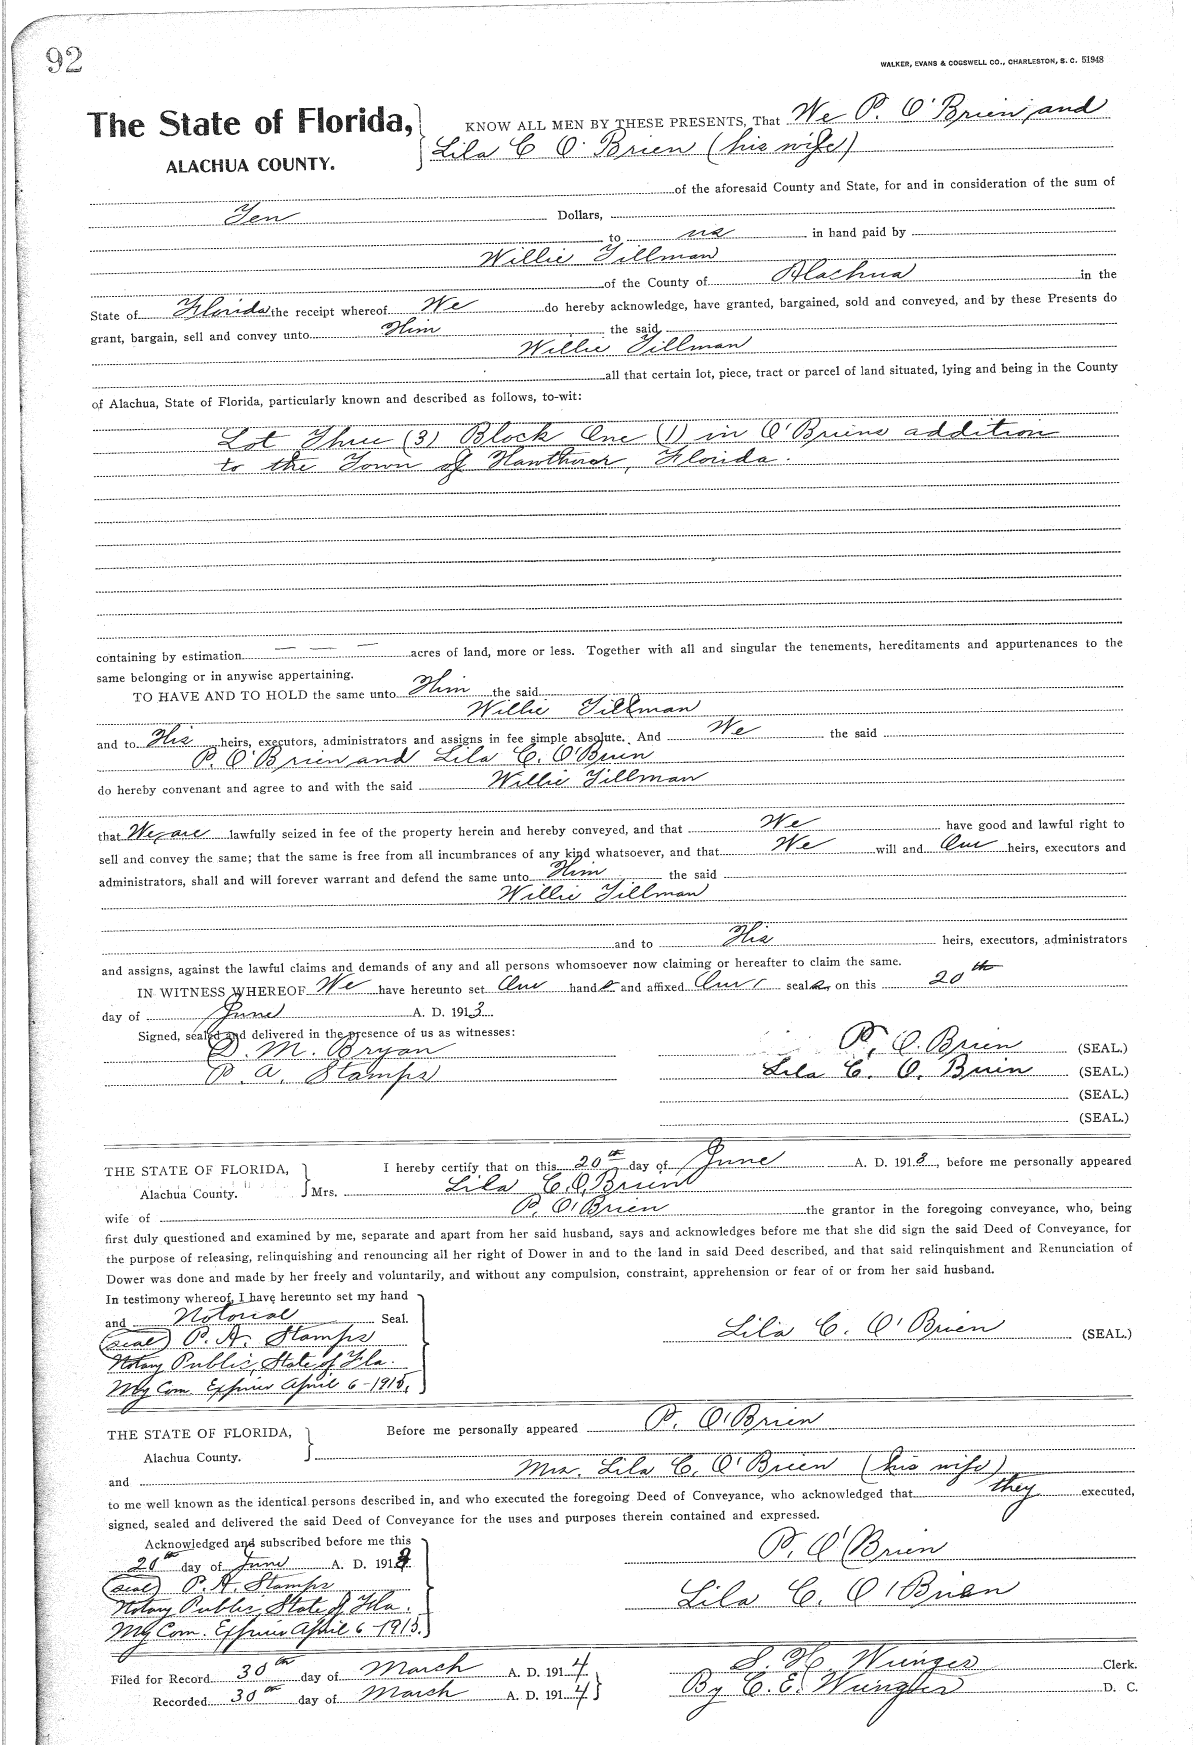 92
WALKER, EVANS & COGSWELL CO., CHARLESTON, S. C. 51948
The State of Florida,
ALACHUA COUNTY.
KNOW ALL MEN BY THESE PRESENTS, That We P. O'Brien and
Lila C O'Brien (his wife)
of the aforesaid County and State, for and in consideration of the sum of
Ten Dollars,
to us in hand paid by
Willie Tillman
of the County of Alachua in the
State of Florida the receipt whereof We do hereby acknowledge, have granted, bargained, sold and conveyed, and by these Presents do
grant, bargain, sell and convey unto Him the said
Willie Tillman
all that certain lot, piece, tract or parcel of land situated, lying and being in the County
of Alachua, State of Florida, particularly known and described as follows, to-wit:
Lot Three (3) Block One (1) in O'Briens addition
to the Town of Florida.
containing by estimation — — — acres of land, more or less. Together with all and singular the tenements, hereditaments and appurtenances to the
same belonging or in anywise appertaining.
TO HAVE AND TO HOLD the same unto Him the said
Willie Tillman
and to His heirs, executors, administrators and assigns in fee simple absolute. And We the said
P. O'Brien and Lila C. O'Brien
do hereby convenant and agree to and with the said Willie Tillman
that We are lawfully seized in fee of the property herein and hereby conveyed, and that We have good and lawful right to
sell and convey the same; that the same is free from all incumbrances of any kind whatsoever, and that We will and Our heirs, executors and
administrators, shall and will forever warrant and defend the same unto Him the said
Willie Tillman
and to His heirs, executors, administrators
and assigns, against the lawful claims and demands of any and all persons whomsoever now claiming or hereafter to claim the same.
IN WITNESS WHEREOF We have hereunto set Our hands and affixed Our seals, on this 20th
day of June A. D. 1913
Signed, sealed and delivered in the presence of us as witnesses:
D. M. Bryan
P. A. Stamps
P. O.Brien (SEAL.)
Lila C. O. Brien (SEAL.)
(SEAL.)
(SEAL.)
THE STATE OF FLORIDA,
Alachua County.
I hereby certify that on this 20th day of June A. D. 1913, before me personally appeared
Mrs. Lila C. O'Brien
wife of P. O'Brien the grantor in the foregoing conveyance, who, being
first duly questioned and examined by me, separate and apart from her said husband, says and acknowledges before me that she did sign the said Deed of Conveyance, for
the purpose of releasing, relinquishing and renouncing all her right of Dower in and to the land in said Deed described, and that said relinquishment and Renunciation of
Dower was done and made by her freely and voluntarily, and without any compulsion, constraint, apprehension or fear of or from her said husband.
In testimony whereof, I have hereunto set my hand
and Notorial Seal.
(seal) P. A. Stamps
Notary Public, State of Fla.
My Com. Expires April 6-1915.
Lila C. O'Brien (SEAL.)
THE STATE OF FLORIDA,
Alachua County.
Before me personally appeared P. O'Brien
and Mrs. Lila C. O'Brien (his wife)
to me well known as the identical persons described in, and who executed the foregoing Deed of Conveyance, who acknowledged that they executed,
signed, sealed and delivered the said Deed of Conveyance for the uses and purposes therein contained and expressed.
Acknowledged and subscribed before me this
20th day of June A. D. 1913.
(seal) P. A. Stamps
Notary Public, State of Fla.
My Com. Expires April 6-1915.
P. O'Brien
Lila C. O'Brien
Filed for Record 30th day of March A. D. 1914
Recorded 30th day of March A. D. 1914
S. H. Wienges Clerk.
By C. E. D. C.